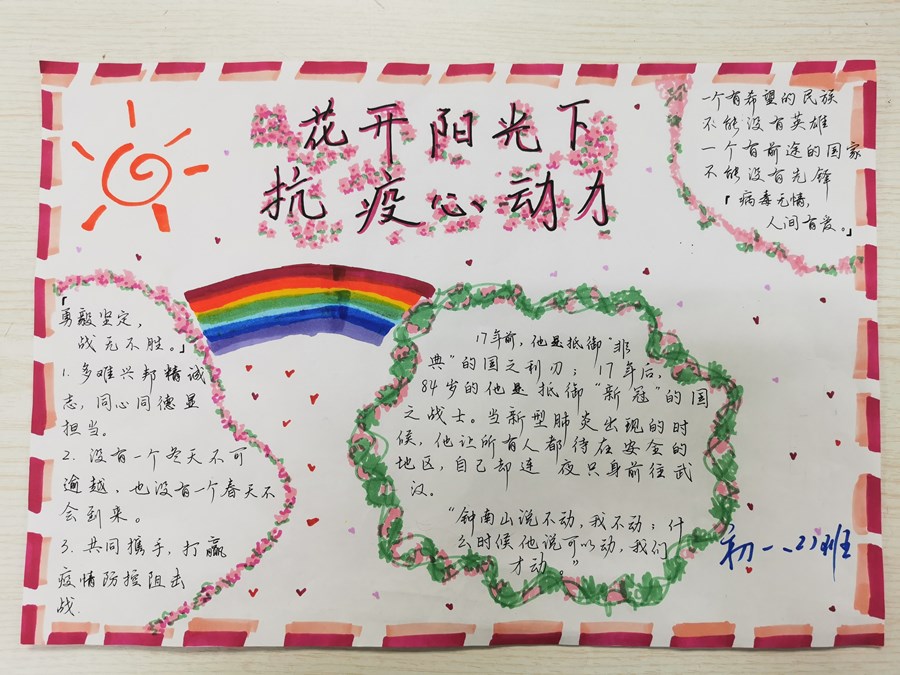 花开阳光下
抗疫心动力
一个有希望的民族
不能没有英雄
一个有前途的国家
不能没有先锋
「病毒无情,
人间有爱。」
「
勇毅坚定,
战无不胜。」
1. 多难兴邦精诚
志,同心同德显
担当。
2. 没有一个冬天不可
逾越,也没有一个春天不
会到来。
3. 共同携手,打赢
疫情防控阻击
战.
17年前,他是抵御“非
典”的国之利刃;17年后,
84岁的他是抵御“新冠”的国
之战士。当新型肺炎出现的时
候,他让所有人都待在安全的
地区,自己却连夜只身前往武
汉。
“钟南山说不动,我不动;什
么时候他说可以动,我们
才动。”
初一、21班